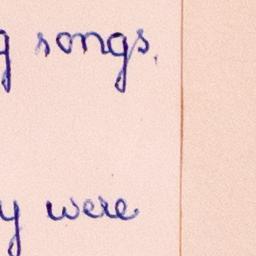 g songs.
y were